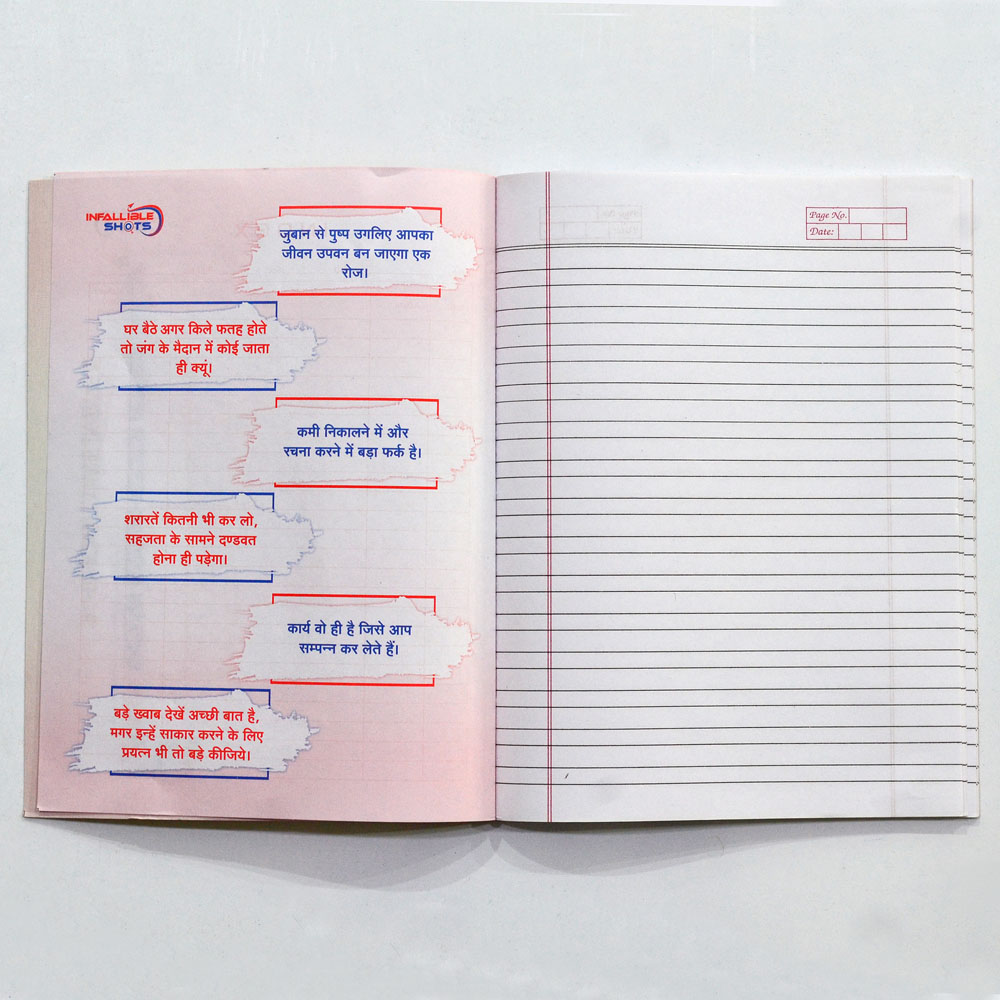 INFALLIBLE
SHOTS
जुबान से पुष्प उगलिए आपका
जीवन उपवन बन जाएगा एक
रोज।
घर बैठे अगर किले फतह होते
तो जंग के मैदान में कोई जाता
ही क्यूं।
कमी निकालने में और
रचना करने में बड़ा फर्क है।
शरारतें कितनी भी कर लो,
सहजता के सामने दण्डवत
होना ही पड़ेगा।
कार्य वो ही है जिसे आप
सम्पन्न कर लेते हैं।
बड़े ख्वाब देखें अच्छी बात है,
मगर इन्हें साकार करने के लिए
प्रयत्न भी तो बड़े कीजिये।
Page No.
Date: